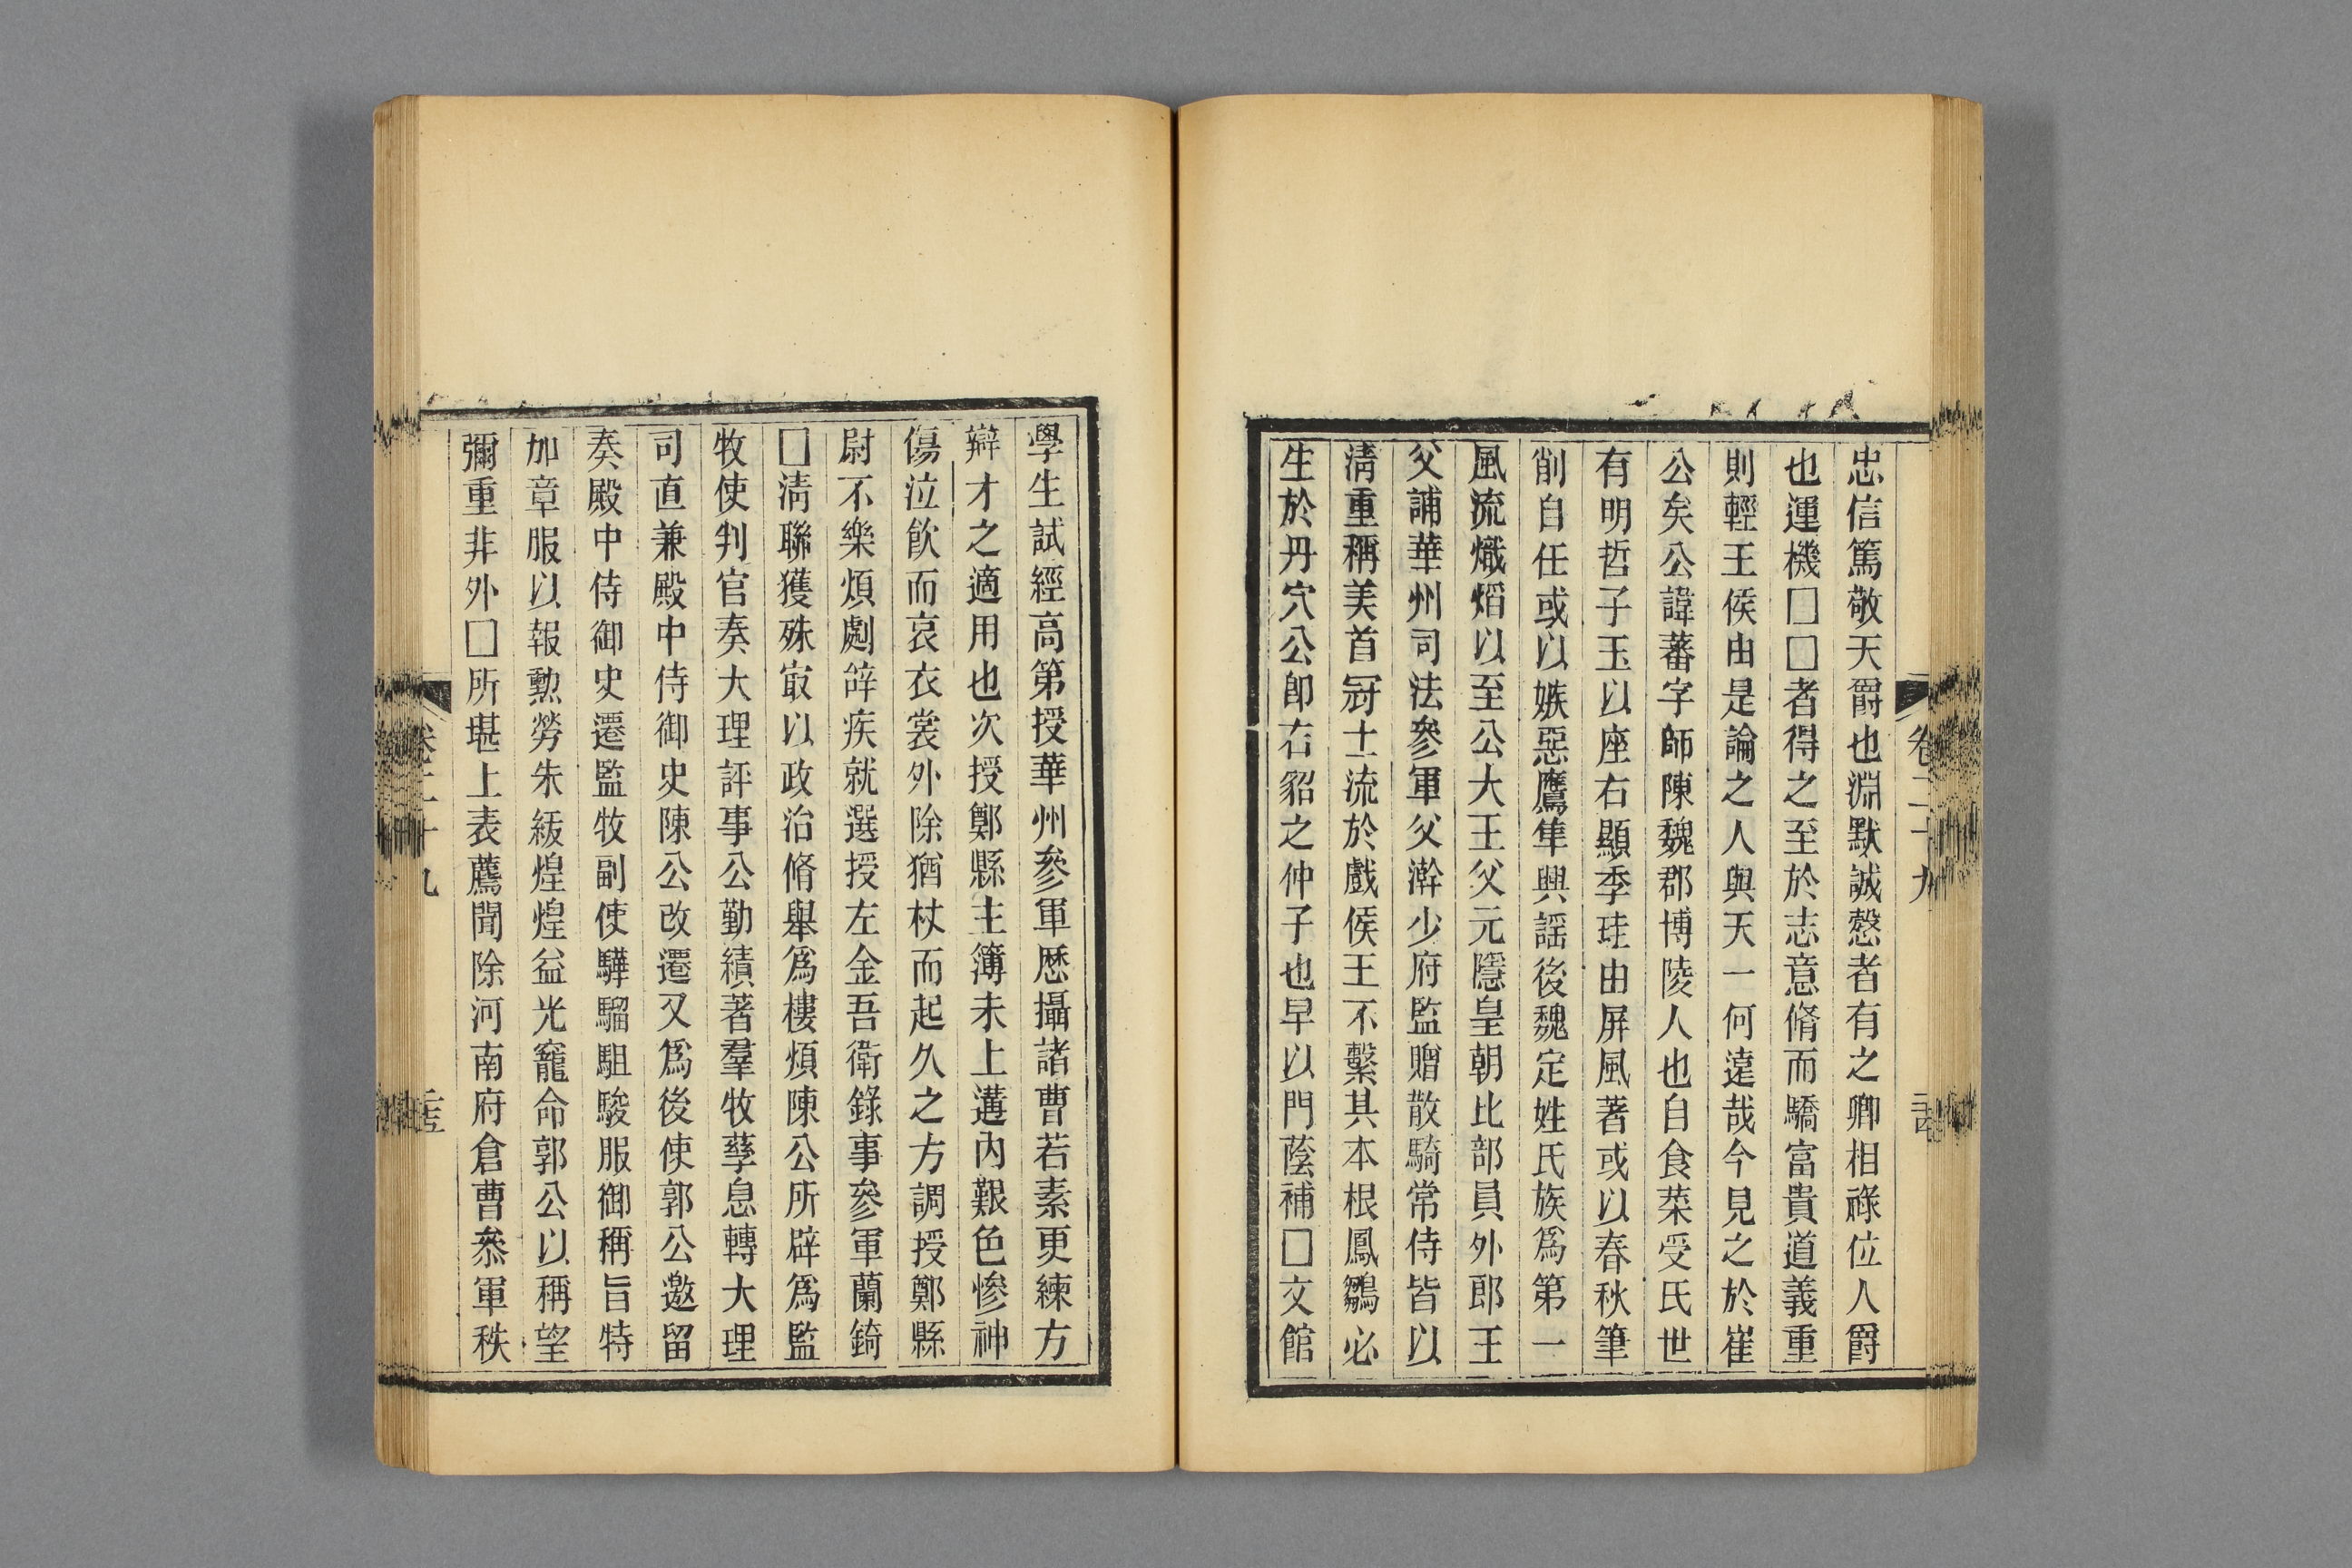 忠信篤敬天爵也淵默誠慤者有之卿相祿位人爵
也運機□□者得之至於志意脩而驕富貴道義重
則輕王侯由是論之人與天一何遠哉今見之於崔
公矣公諱蕃字師陳魏郡博陵人也自食菜受氏世
有明哲子玉以座右顯季珪由屏風著或以春秋筆
削自任或以嫉惡鷹隼興謡後魏定姓氏族爲第一
風流熾熖以至公大王父元隱皇朝比部員外郎王
父誧華州司法參軍父澣少府監贈散騎常侍皆以
淸重稱美首冠士流於戲侯王不繫其本根鳳鶵必
生於丹穴公卽右貂之仲子也早以門蔭補□文館
卷二十九
學生試經高第授華州參軍歷攝諸曹若素更練方
辯才之適用也次授鄭縣主簿未上遘內艱色慘神
傷泣飮而哀衣裳外除猶杖而起久之方調授鄭縣
尉不樂煩劇辭疾就選授左金吾衛錄事參軍蘭錡
□淸聯獲殊㝡以政治脩舉爲樓煩陳公所辟爲監
牧使判官奏大理評事公勤績著羣牧孳息轉大理
司直兼殿中侍御史陳公改遷又爲後使郭公邀留
奏殿中侍御史遷監牧副使驊騮駔駿服御稱旨特
加章服以報勲勞朱紱煌煌益光寵命郭公以稱望
彌重非外□所堪上表薦聞除河南府倉曹叅軍秩